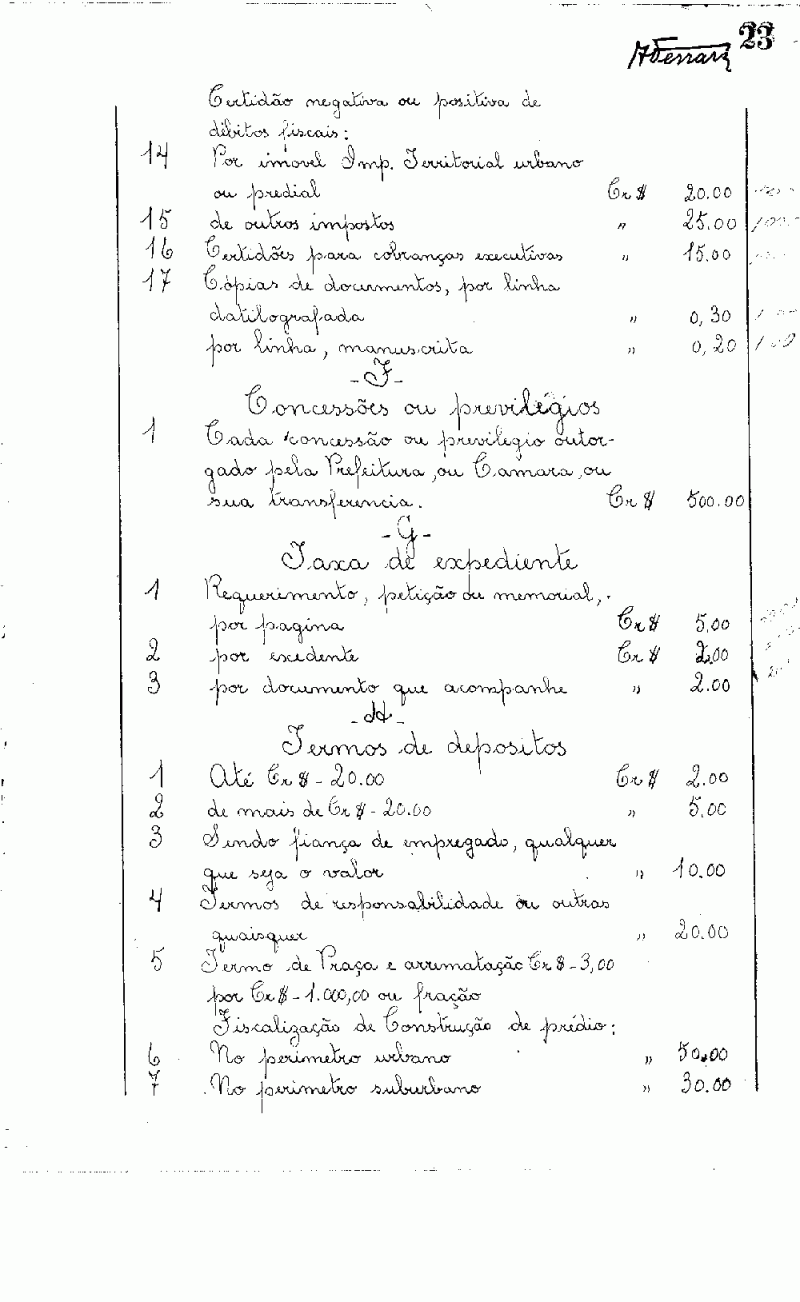 23
Certidão negativa ou positiva de
débitos fiscais:
14 Por imóvel Imp. Territorial urbano
ou predial Cr $ 20.00
15 de outros impostos " 25.00
16 Certidões para cobranças executivas " 15.00
17 Cópias de documentos, por linha
datilografada " 0,30
por linha, manuscrita " 0,20
-F-
Concessões ou previlégios
1 Cada concessão ou previlegio outor-
gado pela Prefeitura, ou Câmara, ou
sua transferencia. Cr $ 500.00
-G-
Taxa de expediente
1 Requerimento, petição ou memorial,
por pagina Cr $ 5,00
2 por exedente Cr $ 2.00
3 por documento que acompanhe " 2.00
-H-
Termos de depositos
1 Até Cr $ - 20.00 Cr $ 2.00
2 de mais de Cr $ - 20.00 " 5,00
3 Sendo fiança de empregado, qualquer
que seja o valor " 10.00
4 Termos de responsabilidade ou outras
quaisquer " 20.00
5 Termo de Praça e arrematação Cr $ - 3,00
por Cr $ - 1.000,00 ou fração
Fiscalização de Construção de prédio:
6 No perimetro urbano " 50.00
7 No perimetro suburbano " 30.00